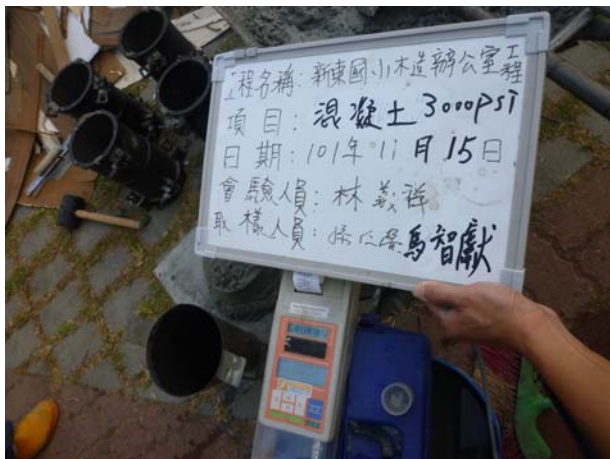 工程名稱: 新東國小木造辦公室工程
項目: 混凝土3000psi
日期: 101年11月15日
會驗人員: 林義祥
取樣人員: 馬智獻